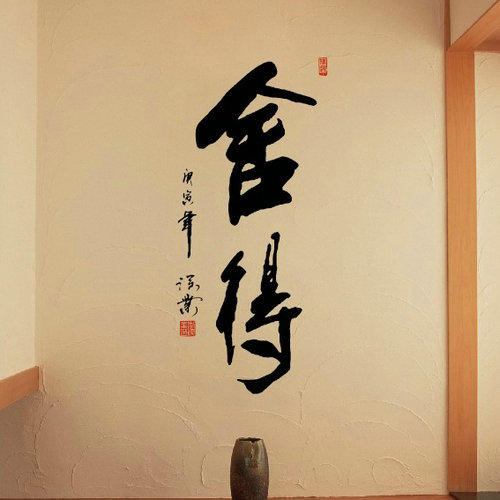 舍得
庚寅年